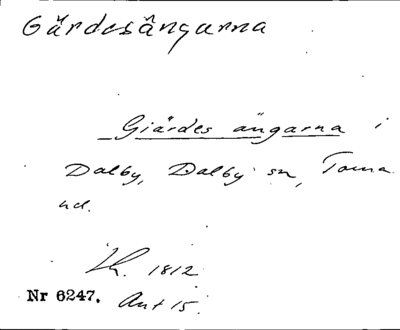 Gärdesängarna
Giärdes ängarna i
Dalby, Dalby sn, Torna
hd.
Lk. 1812
Nr 6247. Akt 15.